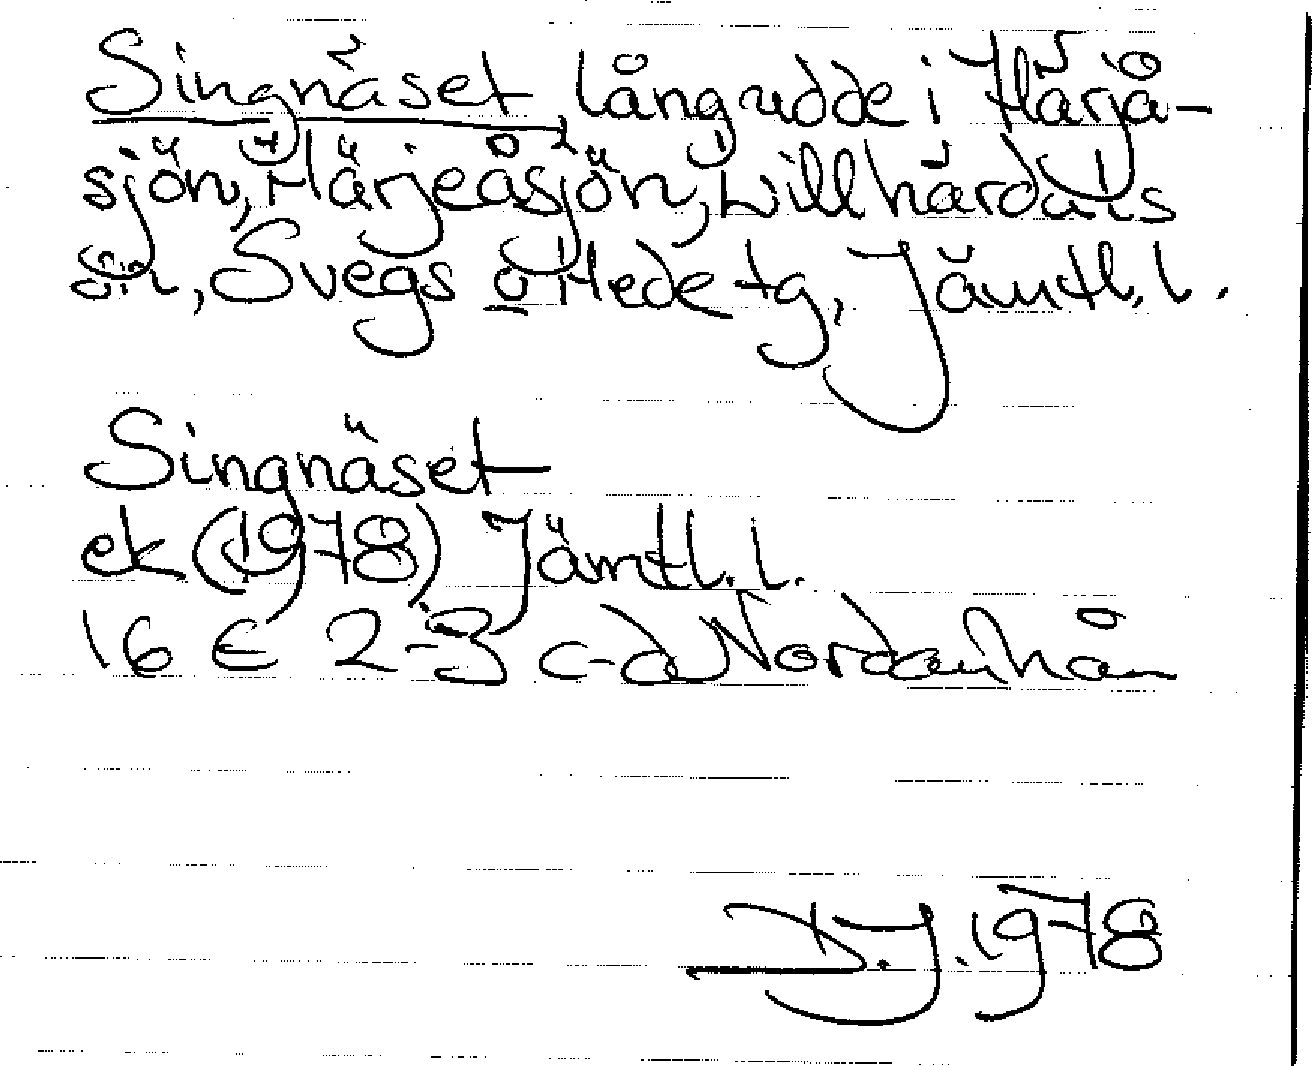 Singnäset, lång udde i Härjå-
sjön, Härjeåsjön, Lillhärdals
ön, Svegs o Hede tg, Jämtl. l.
Singnäset
ek (1978) Jämtl. l.
16 E 2-3 c-d Nordanhå
D.J. 1978